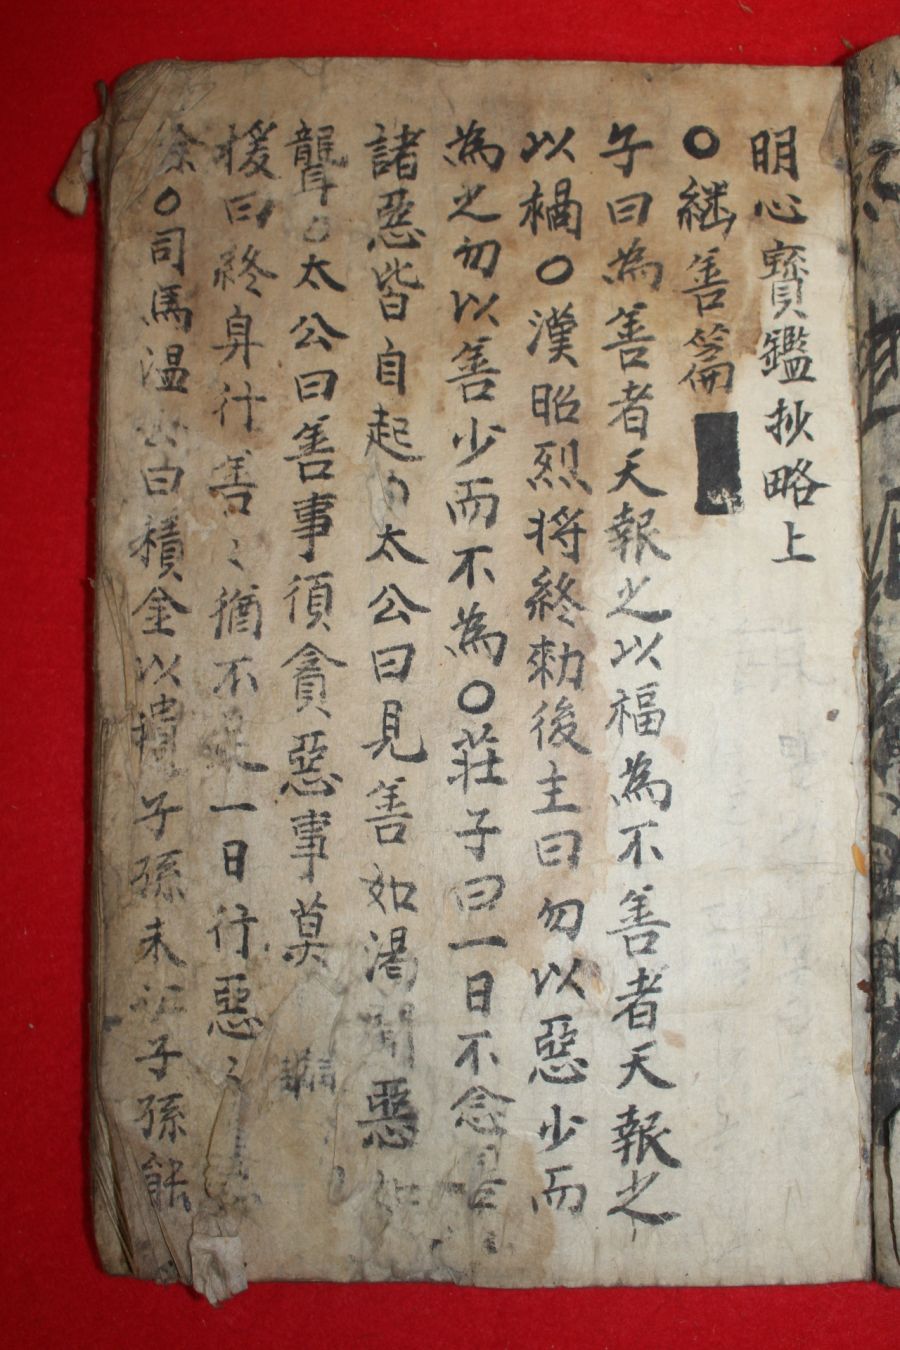 明心寶鑑抄略上
○繼善篇
子曰為善者天報之以福為不善者天報之
以禍○漢昭烈將終勅後主曰勿以惡少而
為之勿以善少而不為○莊子曰一日不念善
諸惡皆自起○太公曰見善如渴聞惡如
聾○太公曰善事須貪惡事莫
援曰終身行善〻猶不足一日行惡〻
餘○司馬温公曰積金以遺子孫未必子孫能